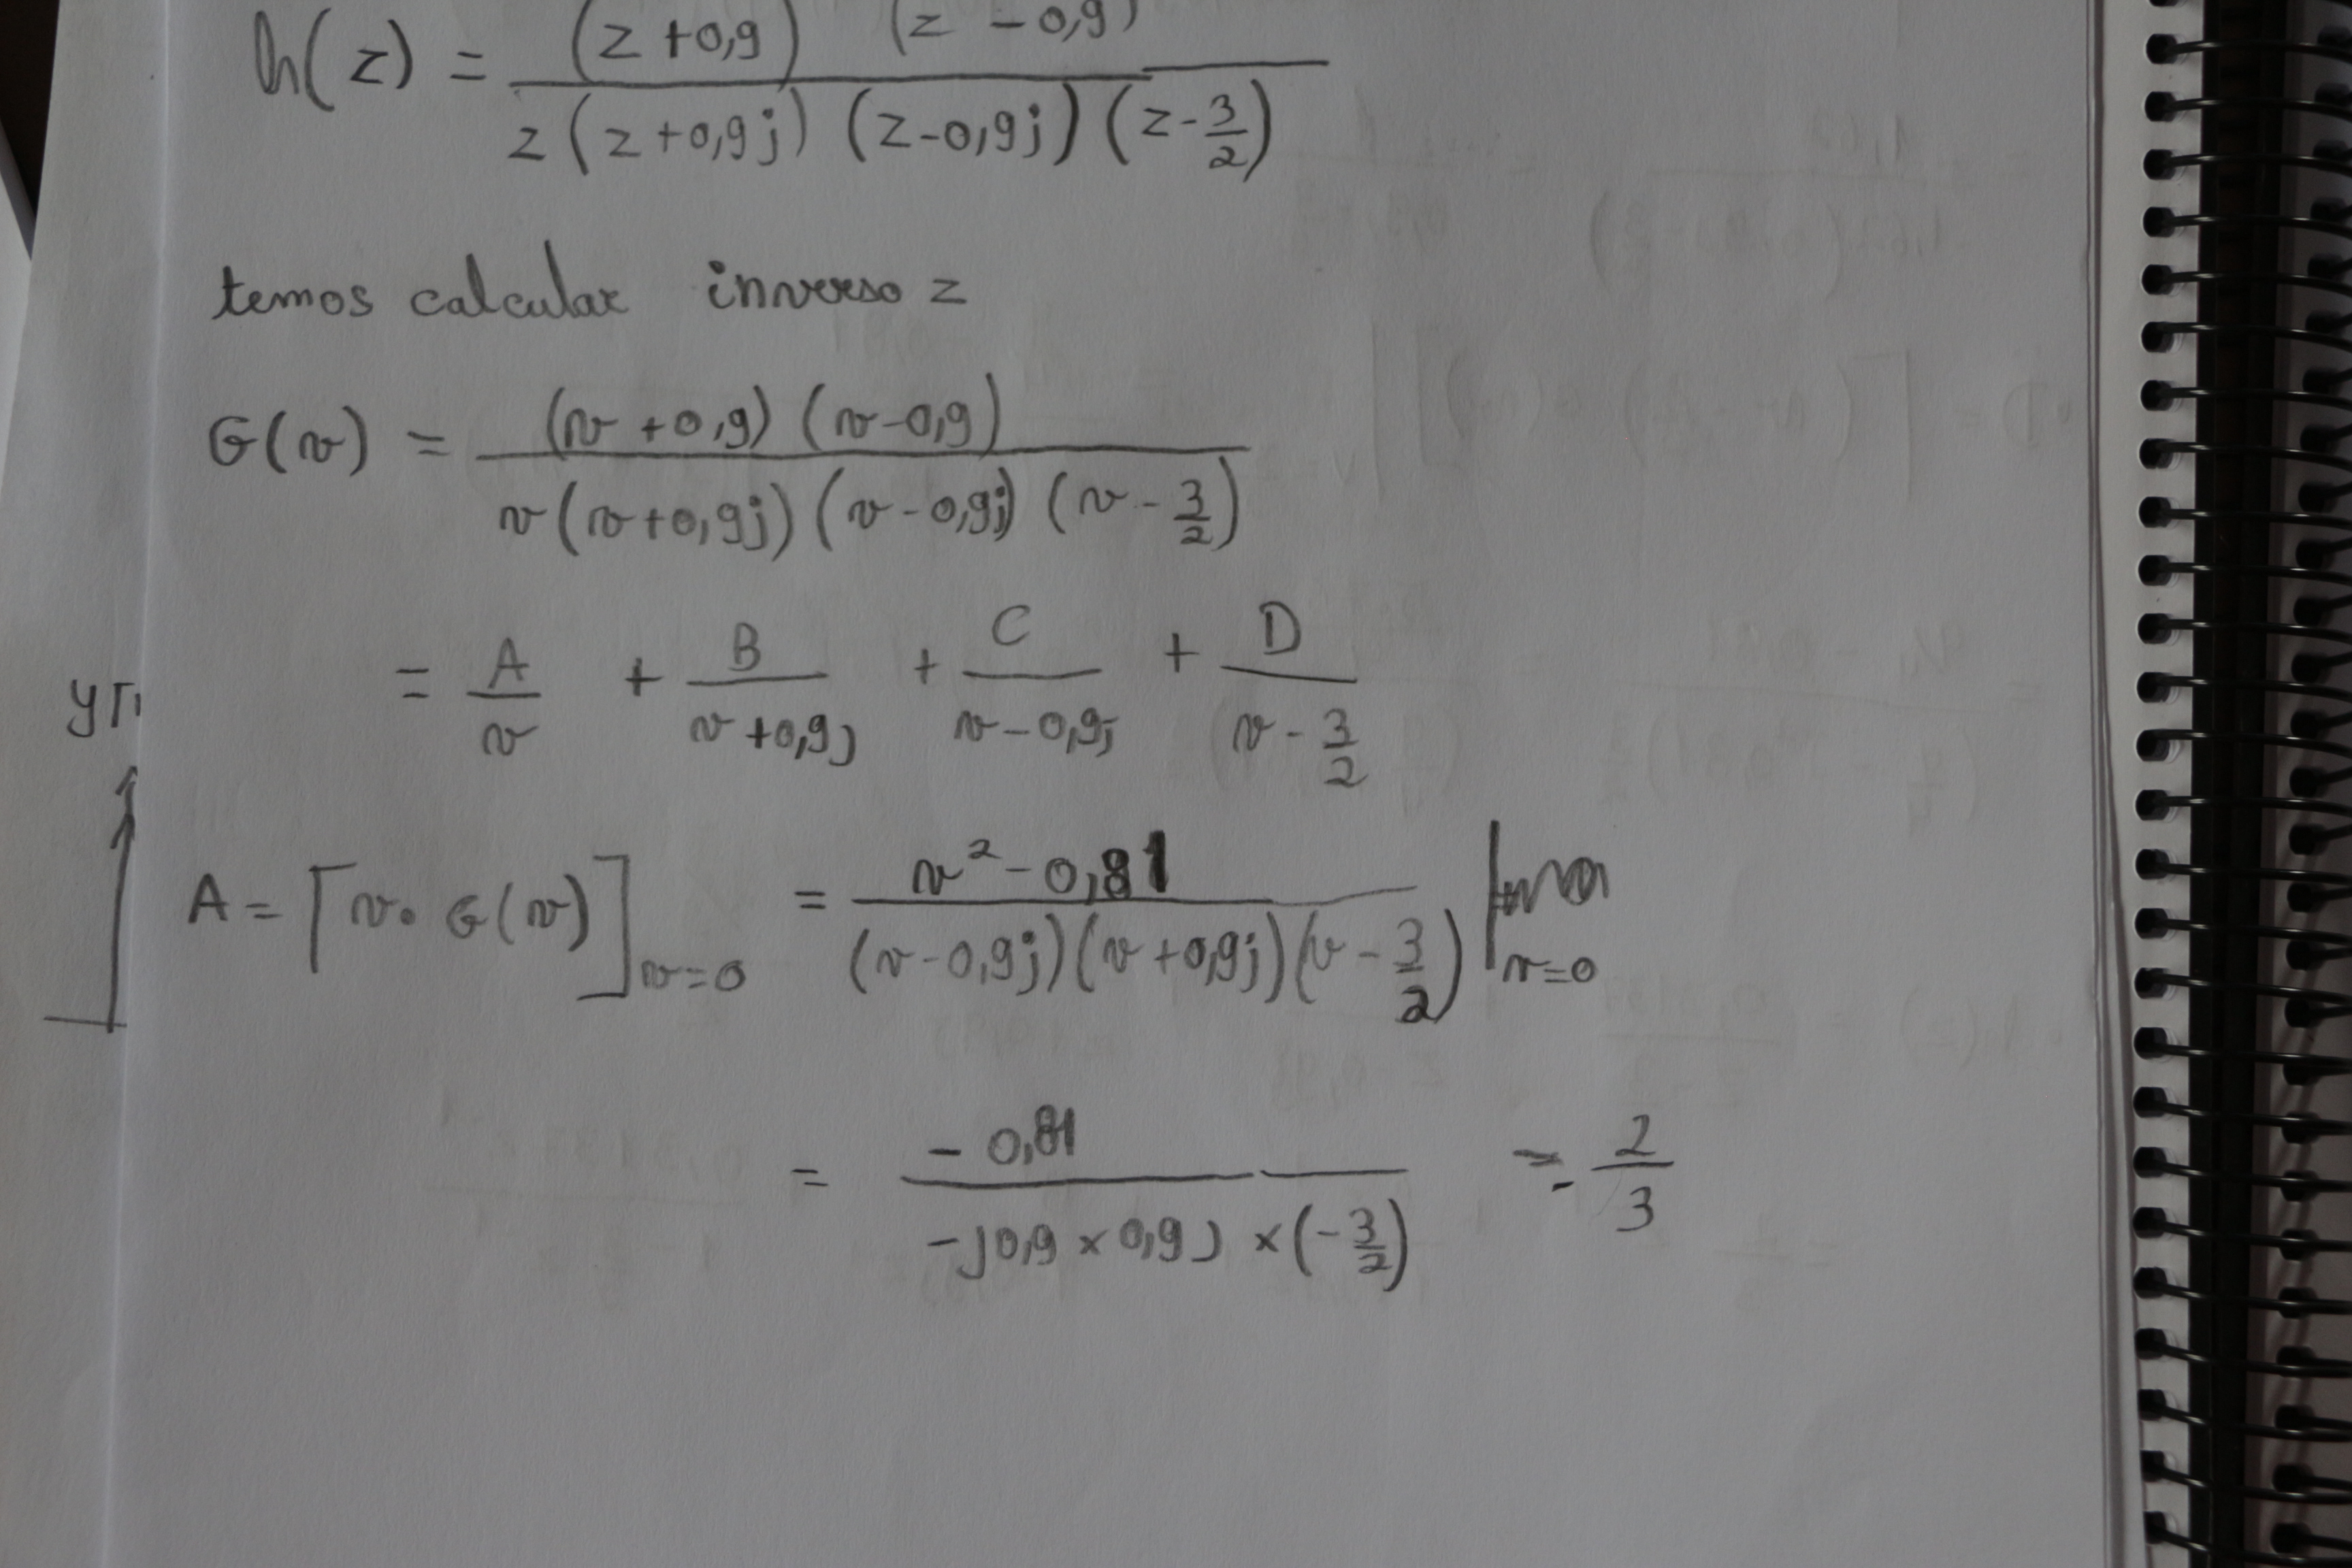 h(z) = (z+0,9) (z-0,9) / z(z+0,9j)(z-0,9j)(z-3/2)
temos calcular inverso z
G(v) = (v+0,9)(v-0,9) / v(v+0,9j)(v-0,9j)(v-3/2)
= A/v + B/v+0,9j + C/v-0,9j + D/v-3/2
A = [v. G(v)]v=0 = v²-0,81 / (v-0,9j)(v+0,9j)(v-3/2) | v=0
= -0,81 / -j0,9 × 0,9j × (-3/2) = 2/3